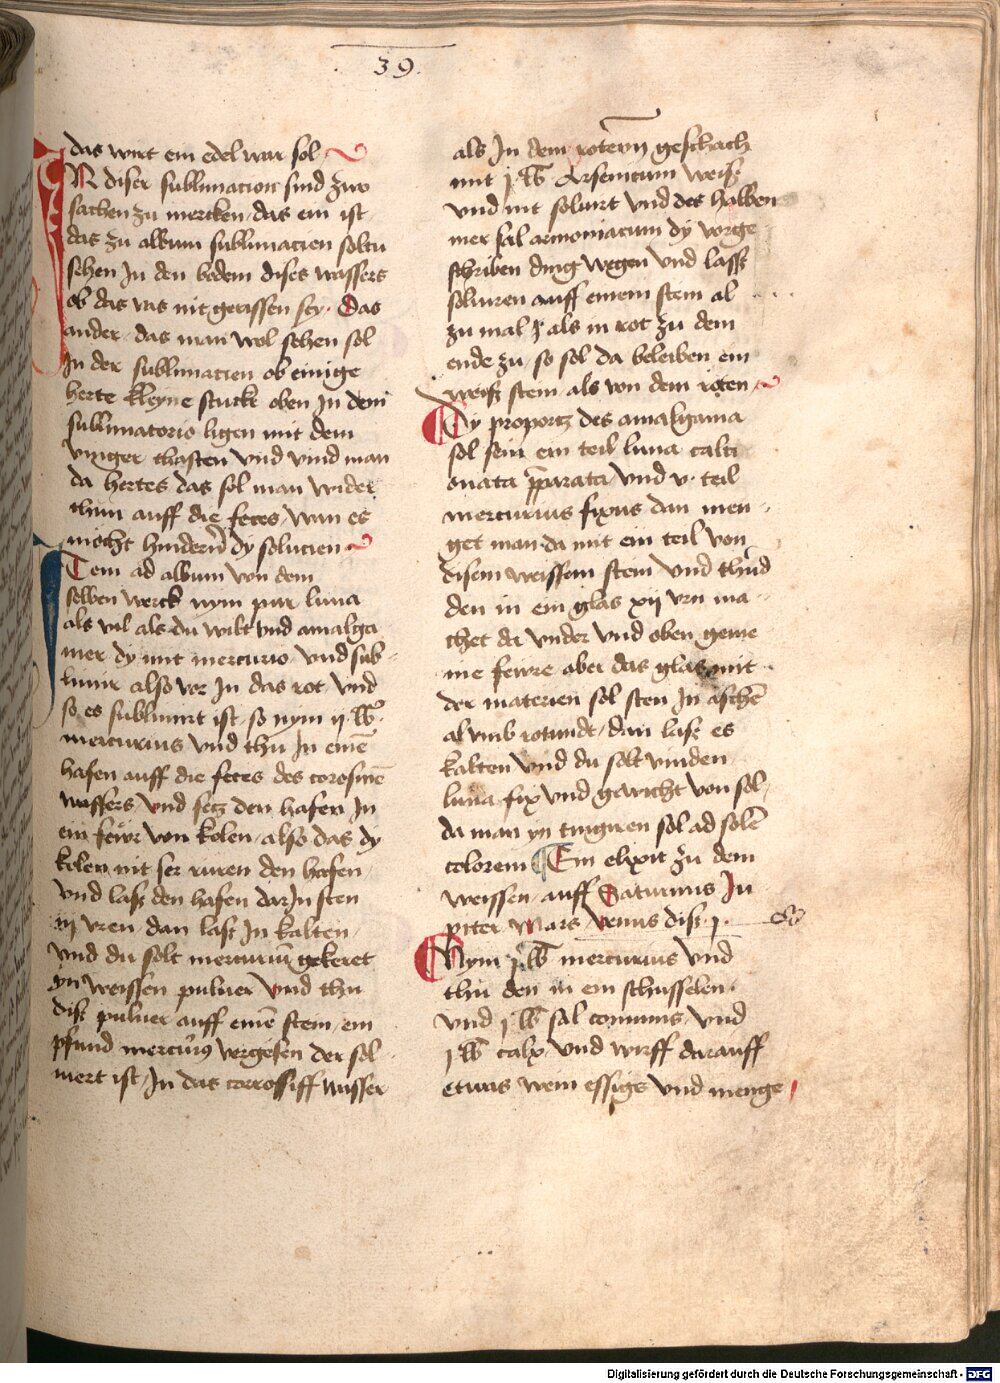 39
das wirt ein edel war sol
In diser sublimacion sind zwo
sachen zu mercken das ein ist
das zu album sublimacien soltu
sehen In den bedem dises wassers
ob das vas nit gerissen sey. Das
ander das man wol sehen sol
In der sublimacien ob einige
herte kleyne stucke oben In dem
sublimatorio ligen mit dem
vinger thasten vnd vind man
da hertes das sol man wider
thun auff die feces wan es
mocht hindern dy solucien
Item ad album von dem
selben werck nym pur luna
als vil als du wilt vnd amalga
mer dy mit mercurio vnd sub
limir also vor In das rot vnd
so es sublimirt ist so nym ij lb
mercurius vnd thu In einē
hafen auff die feces des corosiuē
wassers vnd setz den hafen In
ein fewr von kolen also das dy
kolen nit ser ruren den hafen
vnd lass den hafen darIn sten
iij vren dan lass In kalten
vnd du solt mercuriū gekeret
yn weissen puluer vnd thu
diss puluer auff einē stein ein
pfund mercuriꝰ vergessen der sol
uiert ist In das corrosiff wasser
als In dem rotern geschach
mit j lb Arsenicum weiss
vnd nit soluirt vnd des halben
mer sal armoniacum dy vorge
schriben ding wegen vnd lass
soluiren auff einem stein al
zu mal als in rot zu dem
ende zu so sol da beleiben ein
weiss stein als von dem roten
Dy proportz des amalgama
sol sein ein teil luna calci
onata p̄parata vnd v teil
mercurius fixus dan men
get man da mit ein teil von
disem weissem stein vnd thud
den in ein glas xij vrn ma
chet da vnder vnd oben geme
ine fewre aber das glas mit
der materien sol sten In aschē
al vmb rotundt dan lass es
kalten vnd du solt vinden
luna fix vnd gewicht von sol
da man yn tinguren sol ad solē
colorem Ein elixir zu dem
weissen auff Saturnus Iu
piter Mars venus diss j
Nym j lb mercurius vnd
thu den in ein schusselen
vnd j lb sal comunis vnd
j lb calx vnd wirff darauff
etwas wein essigs vnd menge
Digitalisierung gefördert durch die Deutsche Forschungsgemeinschaft - DFG